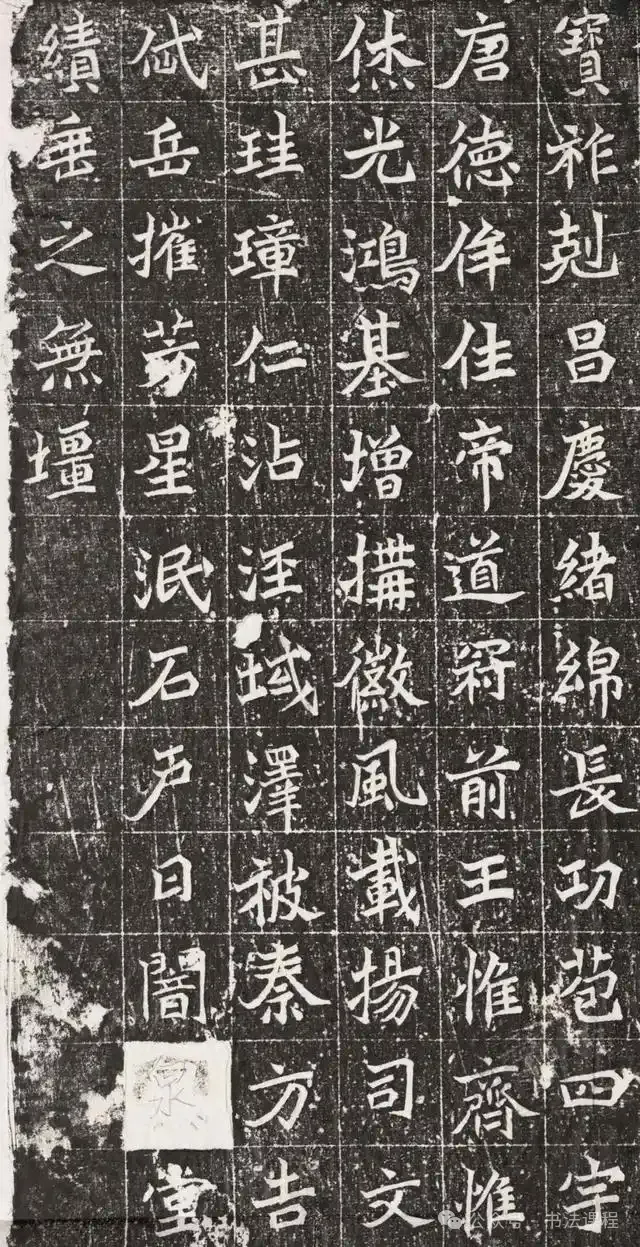 寶祚剋昌慶緒綿長功苞四宇
唐德侔住帝道冠前王惟齊惟
烋光鴻基增搆徽風載揚司文
甚珪璋仁沾域澤被秦方告
岳摧芳星泯石戶日闇泉堂
績垂之無壃
公众号 · 书法课程